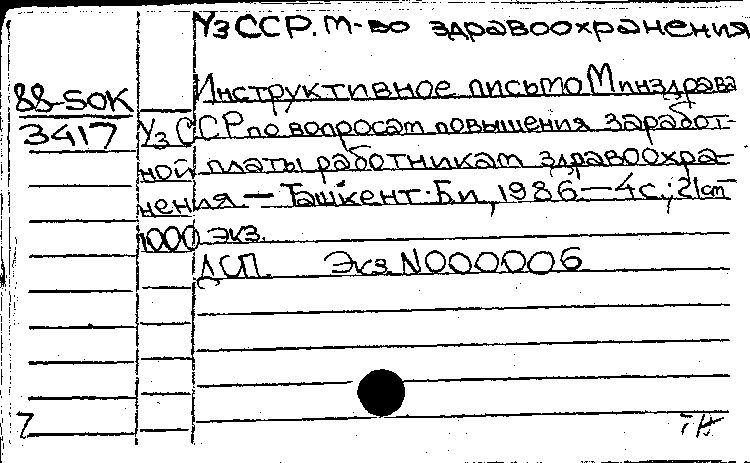 УзССР. М-во здравоохранения
Инструктивное письмо Минздрава
88-SOK
3417
УзССР по вопросам повышения заработ-
ной платы работникам здравоохра-
нения — Ташкент. Б.и, 1986 — 4с.; 21см
1000 экз.
ДСП. Экз N000006
7